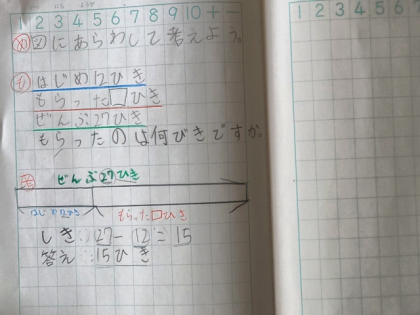 1 2 3 4 5 6 7 8 9 10 + −
め 図にあらわして考えよう。
も はじめ12ひき
もらった□ひき
ぜんぶ27ひき
もらったのは何びきですか。
考 ぜんぶ27ひき
はじめ12ひき もらった□ひき
しき:27−12=15
答え:15ひき
1 2 3 4 5 6 7 8